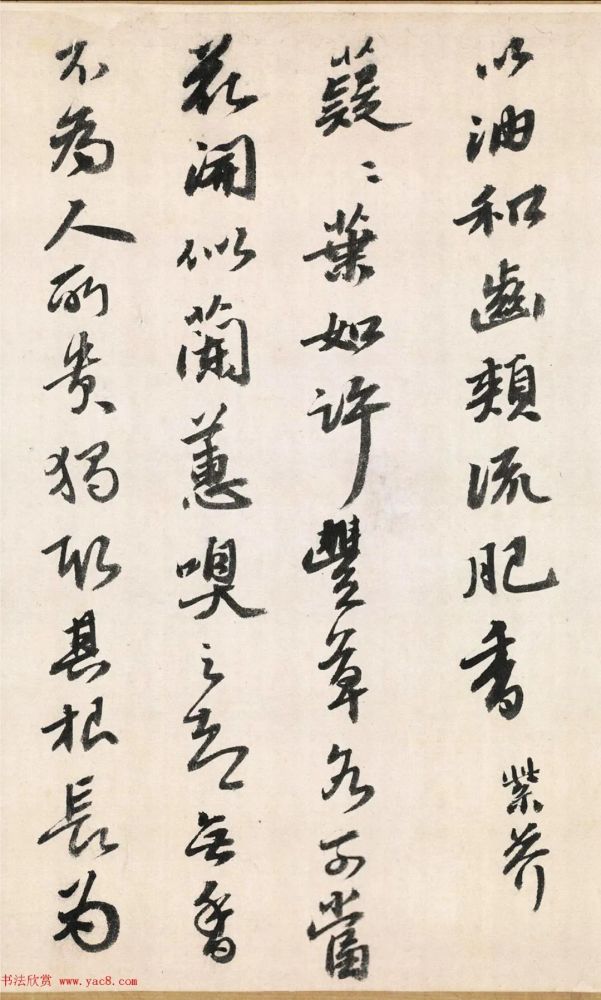 以油和齒頰流肥香 紫芥
薿〻葉如許豐草名可當
花開似蘭蕙嗅之却無香
不為人所貴獨取其根長為
书法欣赏 www.yac8.com